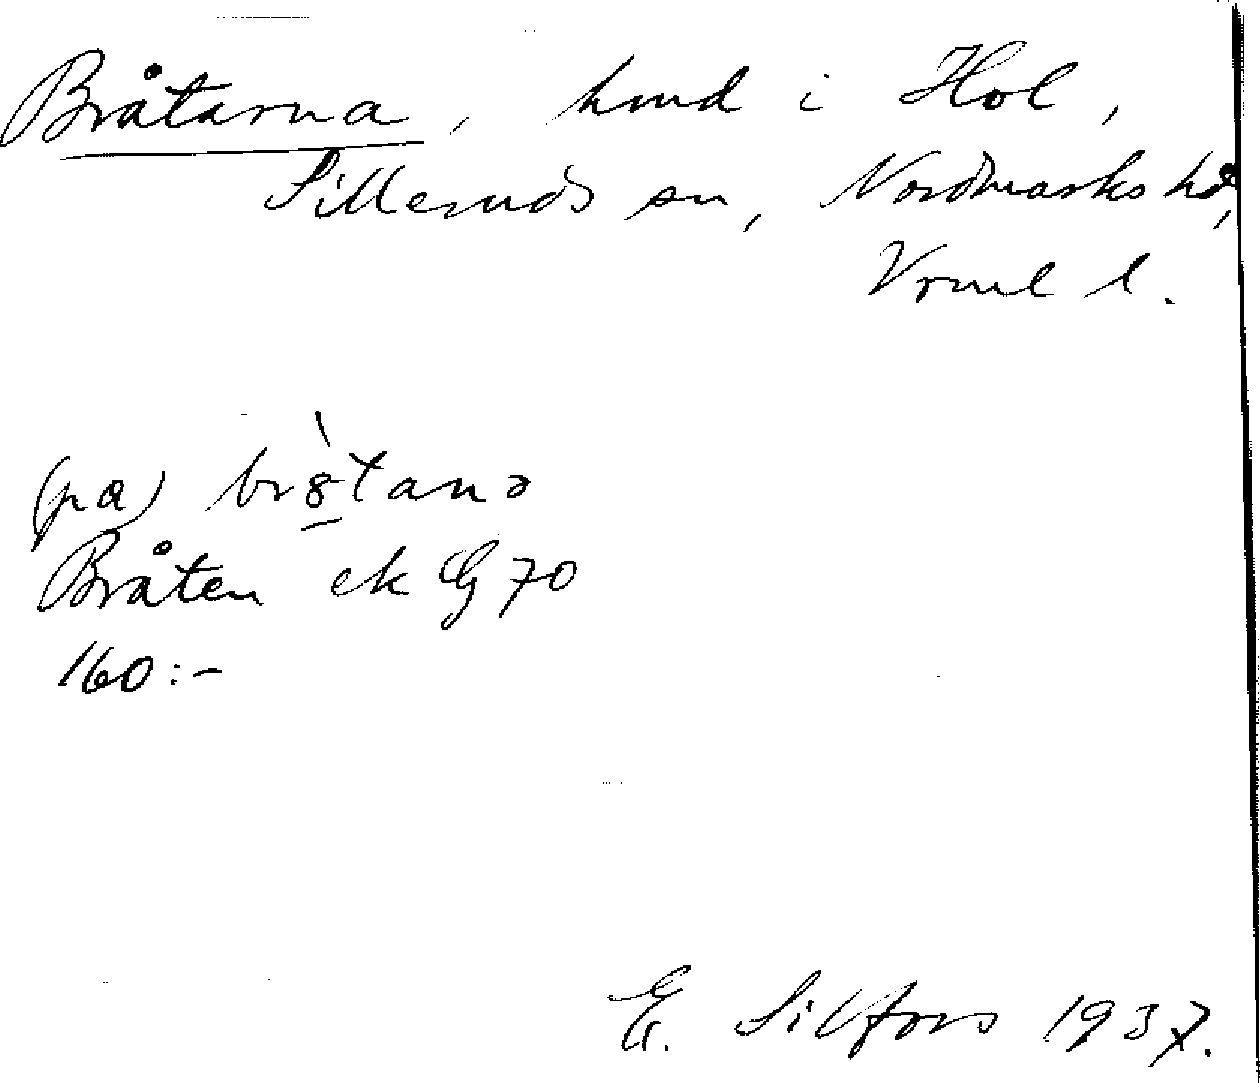 Bråtarna, hmd i Hol,
Silleruds sn, Nordmarks hd,
Vrml l.
(pa) br8̲̀tanə
Bråten ek G 70
160:-
Er. Silfors 1937.